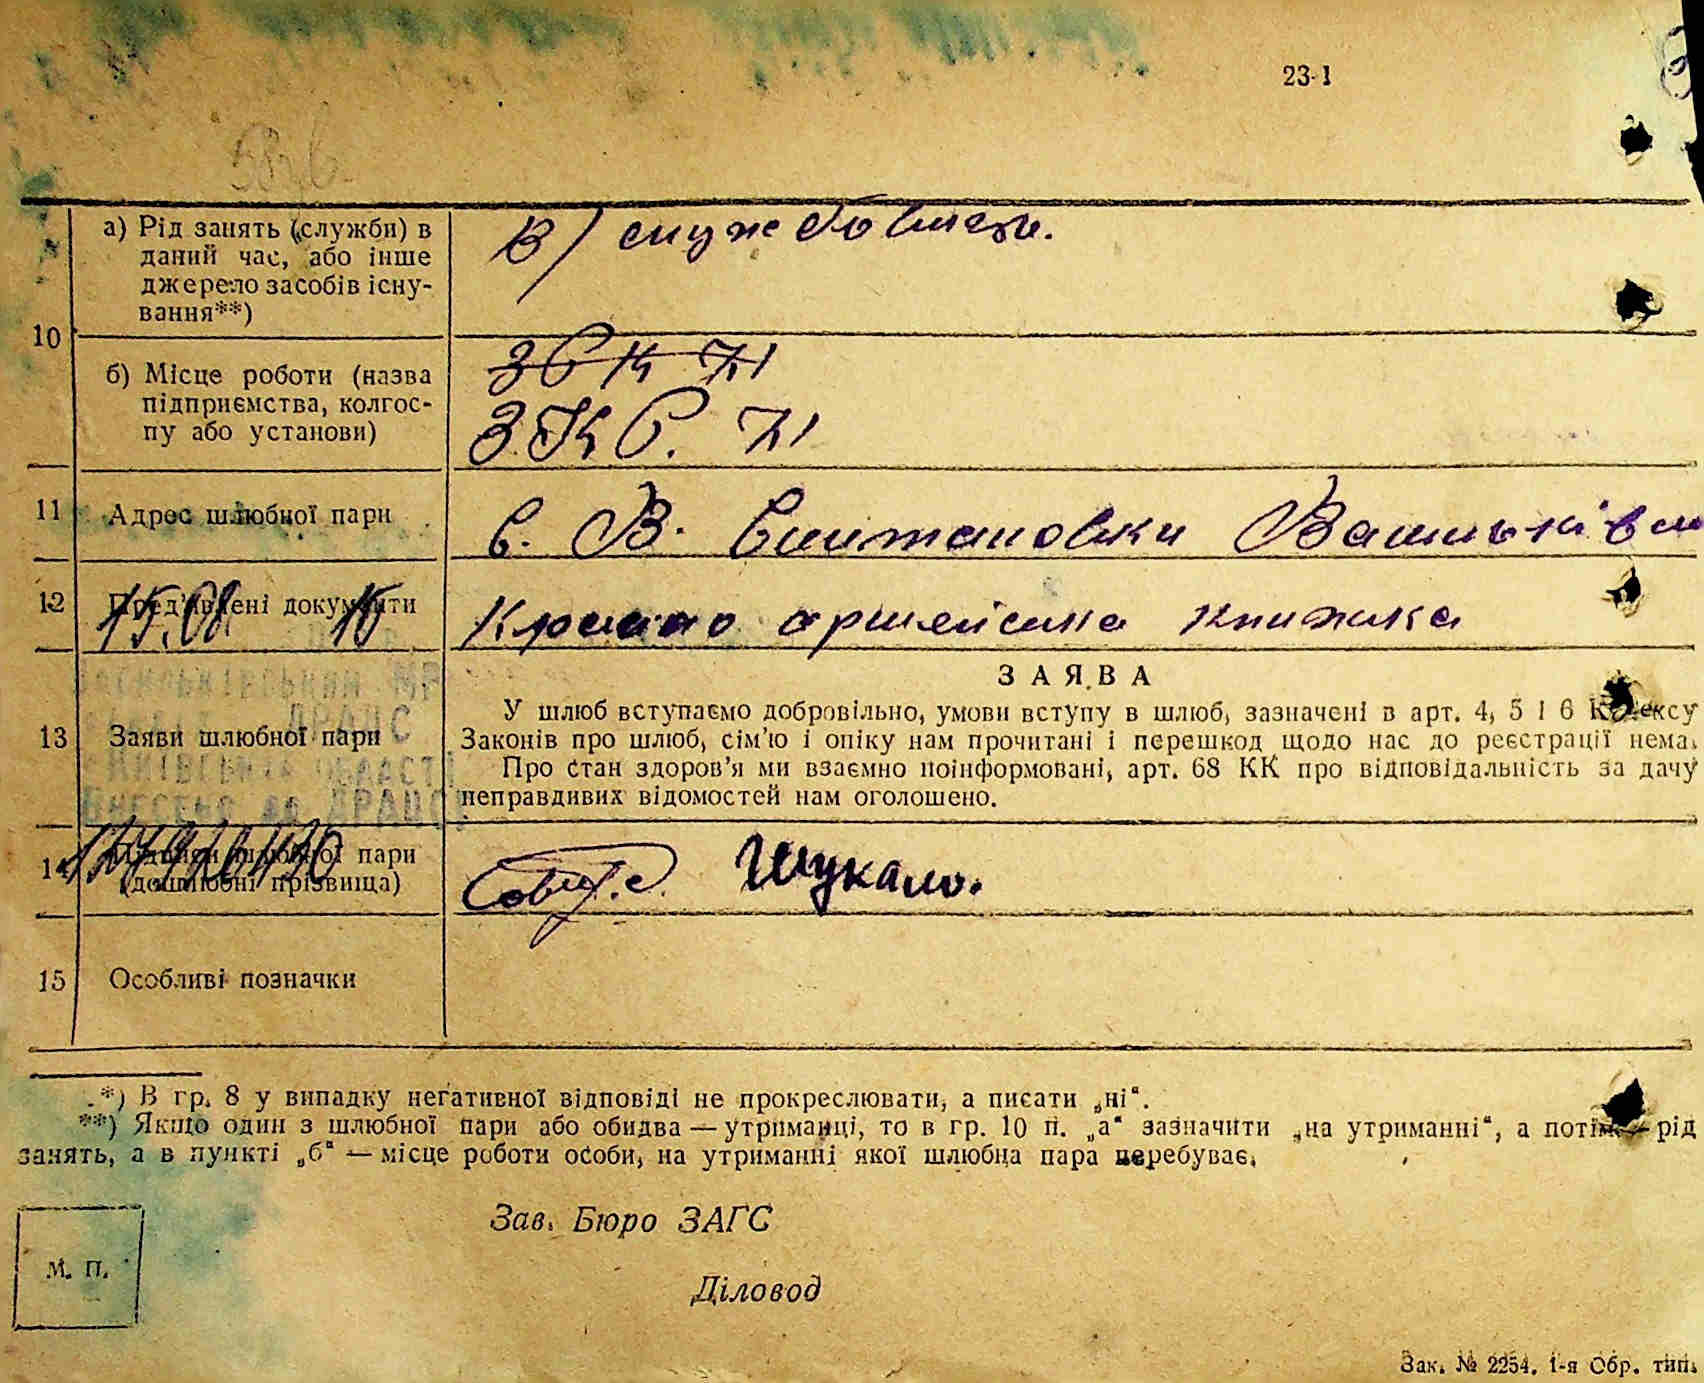 23-1
10
а) Рід занять (служби) в
даний час, або інше
джерело засобів існу-
вання**)
В/ службовець.
б) Місце роботи (назва
підприємства, колгос-
пу або установи)
З.К.С. №1
11 Адрес шлюбної пари
с. В. Снитановки
12 Пред'явлені документи
15.08. 15
Красно армейська книжка
13 Заяви шлюбної пари
ДРАЦС
ЗАЯВА
У шлюб вступаємо добровільно, умови вступу в шлюб, зазначені в арт. 4, 5 і 6 Кодексу
Законів про шлюб, сім'ю і опіку нам прочитані і перешкод щодо нас до реєстрації нема.
Про стан здоров'я ми взаємно поінформовані, арт. 68 КК про відповідальність за дачу
неправдивих відомостей нам оголошено.
14 Підписи шлюбної пари
(дошлюбні прізвища)
Шукало.
15 Особливі позначки
*) В гр. 8 у випадку негативної відповіді не прокреслювати, а писати „ні“.
**) Якщо один з шлюбної пари або обидва — утриманці, то в гр. 10 п. „а“ зазначити „на утриманні“, а потім — рід
занять, а в пункті „б“ — місце роботи особи, на утриманні якої шлюбна пара перебуває.
Зав. Бюро ЗАГС
М. П.
Діловод
Зак. № 2254. 1-я Обр. тип.